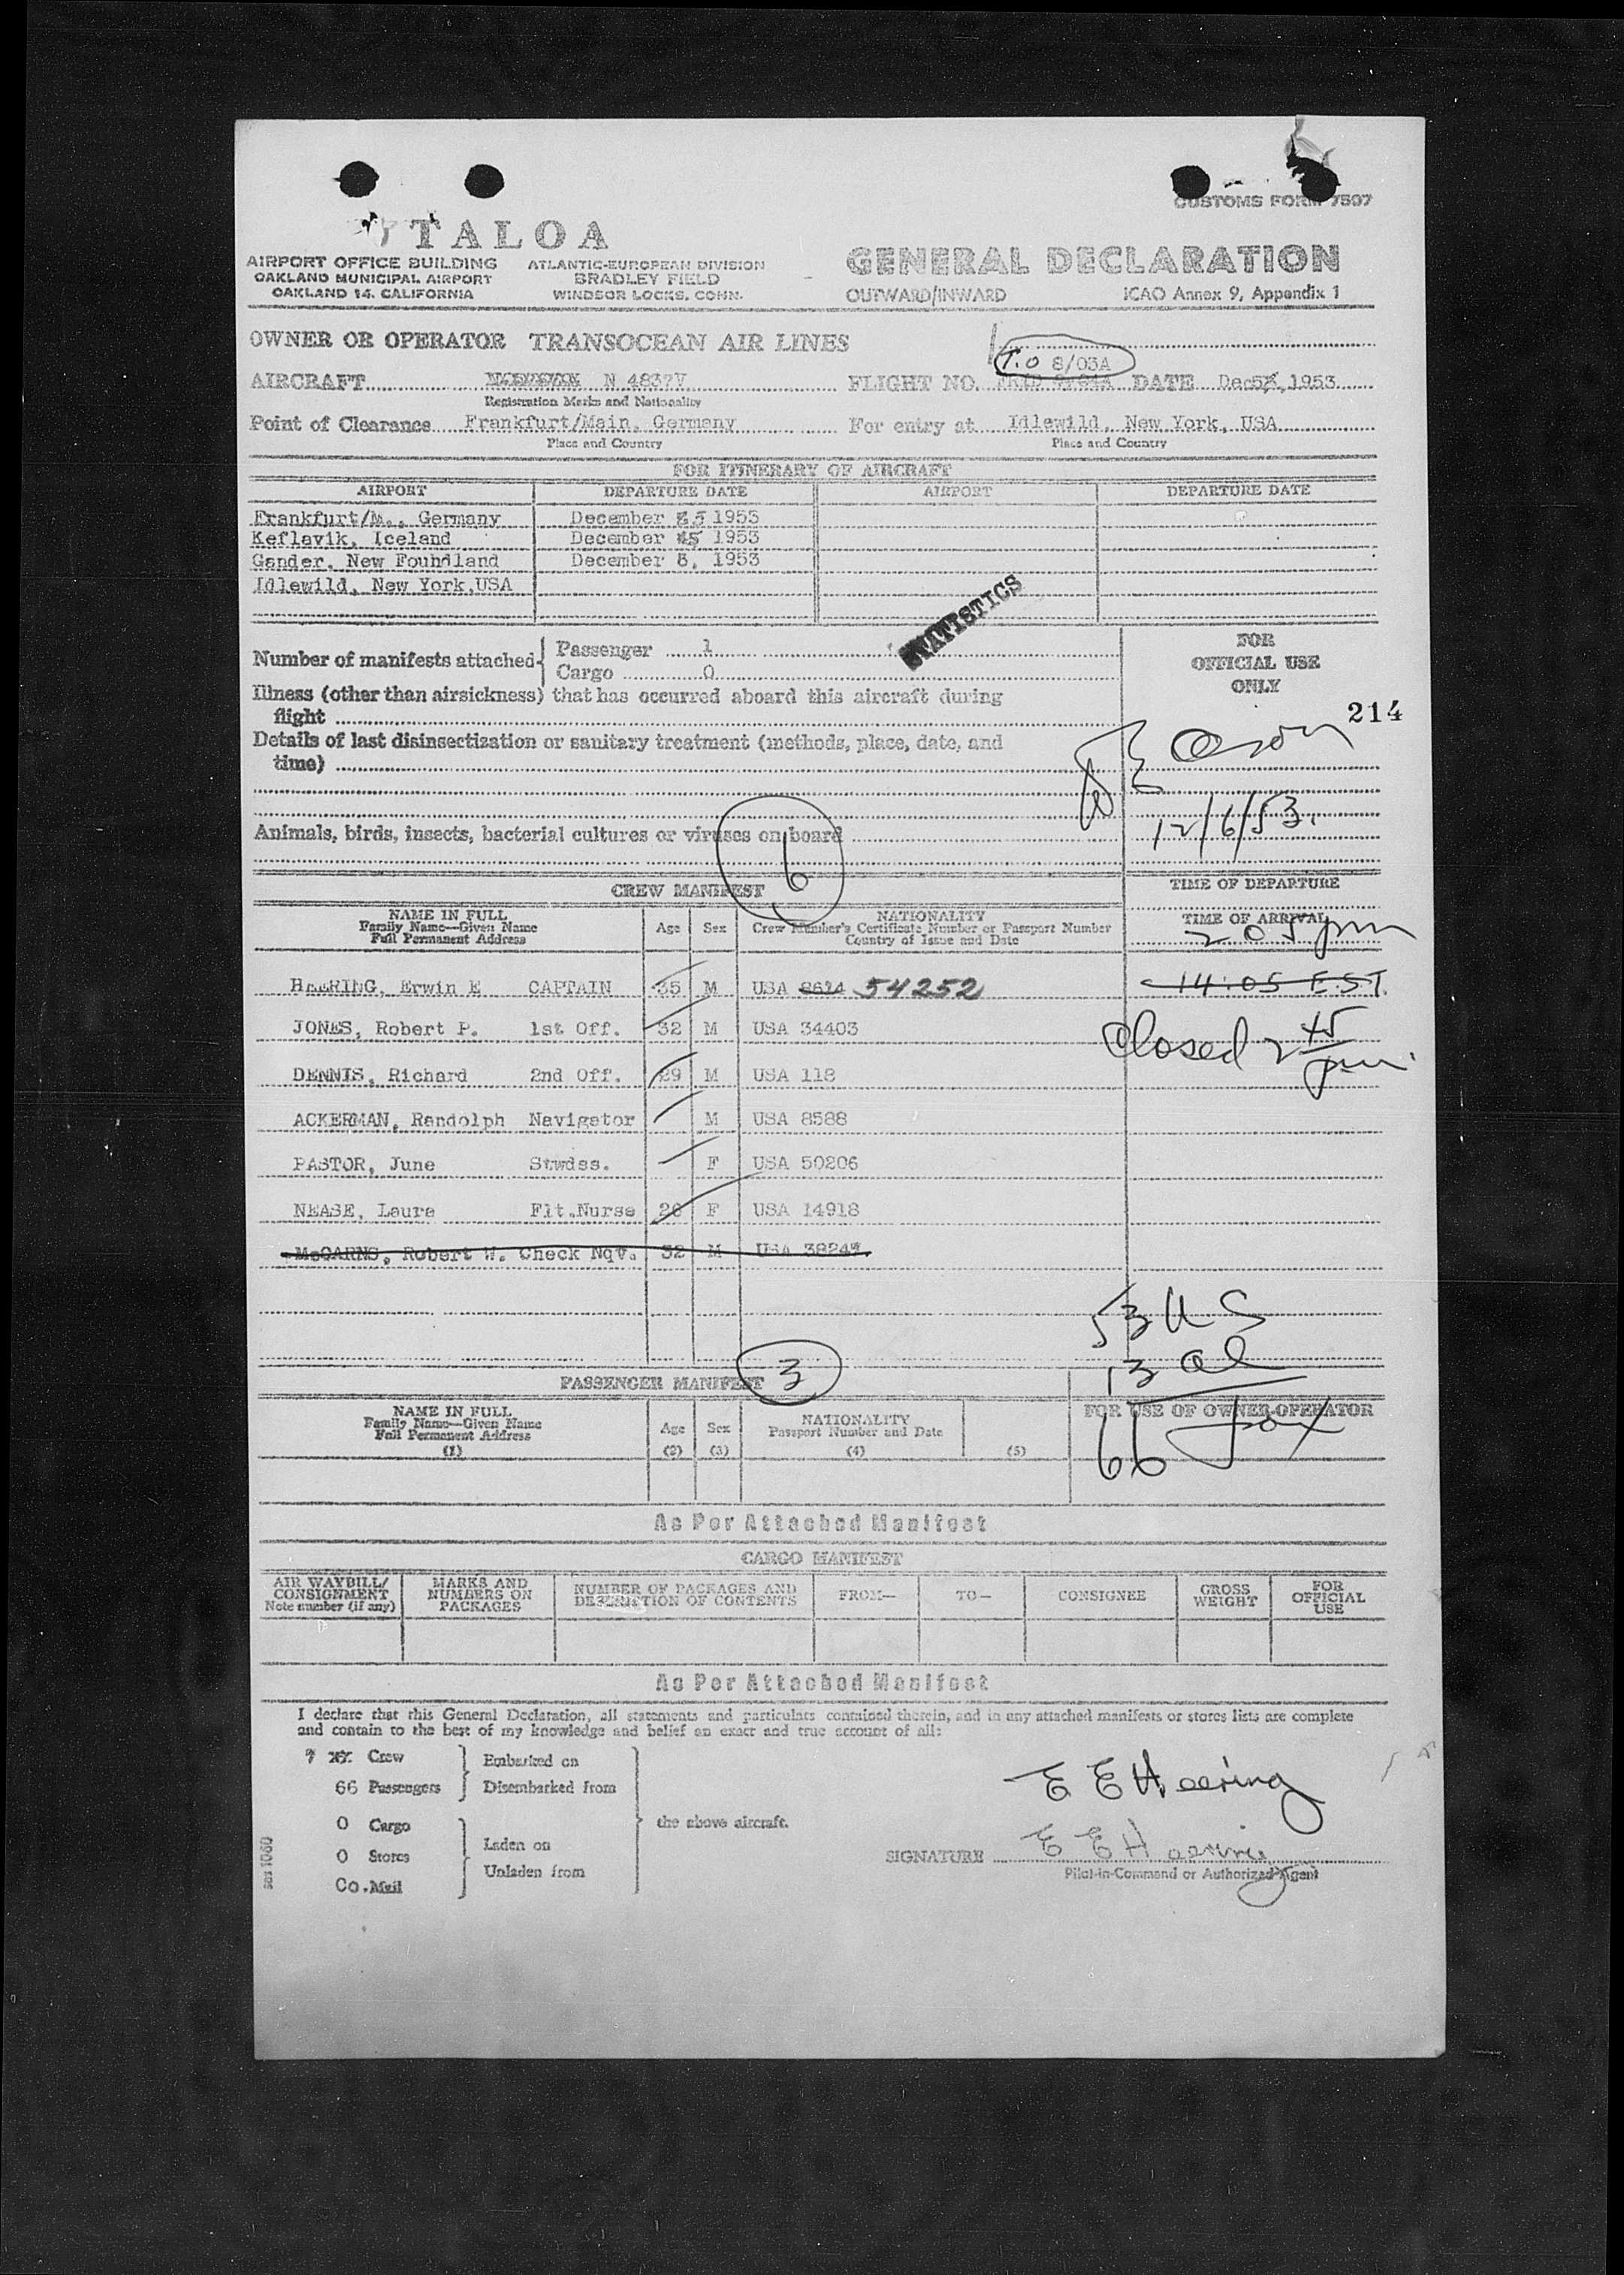 CUSTOMS FORM 7507
TALOA
AIRPORT OFFICE BUILDING
OAKLAND MUNICIPAL AIRPORT
OAKLAND 14, CALIFORNIA
ATLANTIC-EUROPEAN DIVISION
BRADLEY FIELD
WINDSOR LOCKS, CONN.
GENERAL DECLARATION
OUTWARD/INWARD ICAO Annex 9, Appendix 1
OWNER OR OPERATOR TRANSOCEAN AIR LINES
T.O 8/03A
AIRCRAFT N 4837V FLIGHT NO. DATE Dec 5, 1953
Registration Marks and Nationality
Point of Clearance Frankfurt/Main, Germany For entry at Idlewild, New York, USA
Place and Country Place and Country
FOR ITINERARY OF AIRCRAFT
AIRPORT DEPARTURE DATE AIRPORT DEPARTURE DATE
Frankfurt/M., Germany December 5 1953
Keflavik, Iceland December 5 1953
Gander, New Foundland December 6, 1953
Idlewild, New York,USA
STATISTICS
Number of manifests attached Passenger 1
Cargo 0
FOR
OFFICIAL USE
ONLY
Illness (other than airsickness) that has occurred aboard this aircraft during
flight
214
Details of last disinsectization or sanitary treatment (methods, place, date, and
time)
12/6/53.
Animals, birds, insects, bacterial cultures or viruses on board
6
CREW MANIFEST
TIME OF DEPARTURE
NAME IN FULL
Family Name—Given Name
Full Permanent Address
Age Sex
NATIONALITY
Crew Member's Certificate Number or Passport Number
Country of Issue and Date
TIME OF ARRIVAL
205 pm
HEERING, Erwin E CAPTAIN 35 M USA 8614 54252
14:05 E.S.T.
JONES, Robert P. 1st Off. 32 M USA 34403
Closed 2 45 pm
DENNIS, Richard 2nd Off. 29 M USA 118
ACKERMAN, Randolph Navigator M USA 8588
PASTOR, June Stwdss. F USA 50206
NEASE, Laura Flt.Nurse 26 F USA 14918
McCARNS, Robert W. Check Nqv. 32 M USA 38247
53 US
13 al
66 pax
3
PASSENGER MANIFEST
NAME IN FULL
Family Name—Given Name
Full Permanent Address
(1)
Age
(2)
Sex
(3)
NATIONALITY
Passport Number and Date
(4)
(5)
FOR USE OF OWNER-OPERATOR
As Per Attached Manifest
CARGO MANIFEST
AIR WAYBILL/
CONSIGNMENT
Note number (if any)
MARKS AND
NUMBERS ON
PACKAGES
NUMBER OF PACKAGES AND
DESCRIPTION OF CONTENTS
FROM— TO— CONSIGNEE
GROSS
WEIGHT
FOR
OFFICIAL
USE
As Per Attached Manifest
I declare that this General Declaration, all statements and particulars contained therein, and in any attached manifests or stores lists are complete
and contain to the best of my knowledge and belief an exact and true account of all:
7 Crew
66 Passengers
Embarked on
Disembarked from
0 Cargo
0 Stores
Co. Mail
Laden on
Unladen from
the above aircraft.
E E Heering
SIGNATURE E E Heering
Pilot-in-Command or Authorized Agent